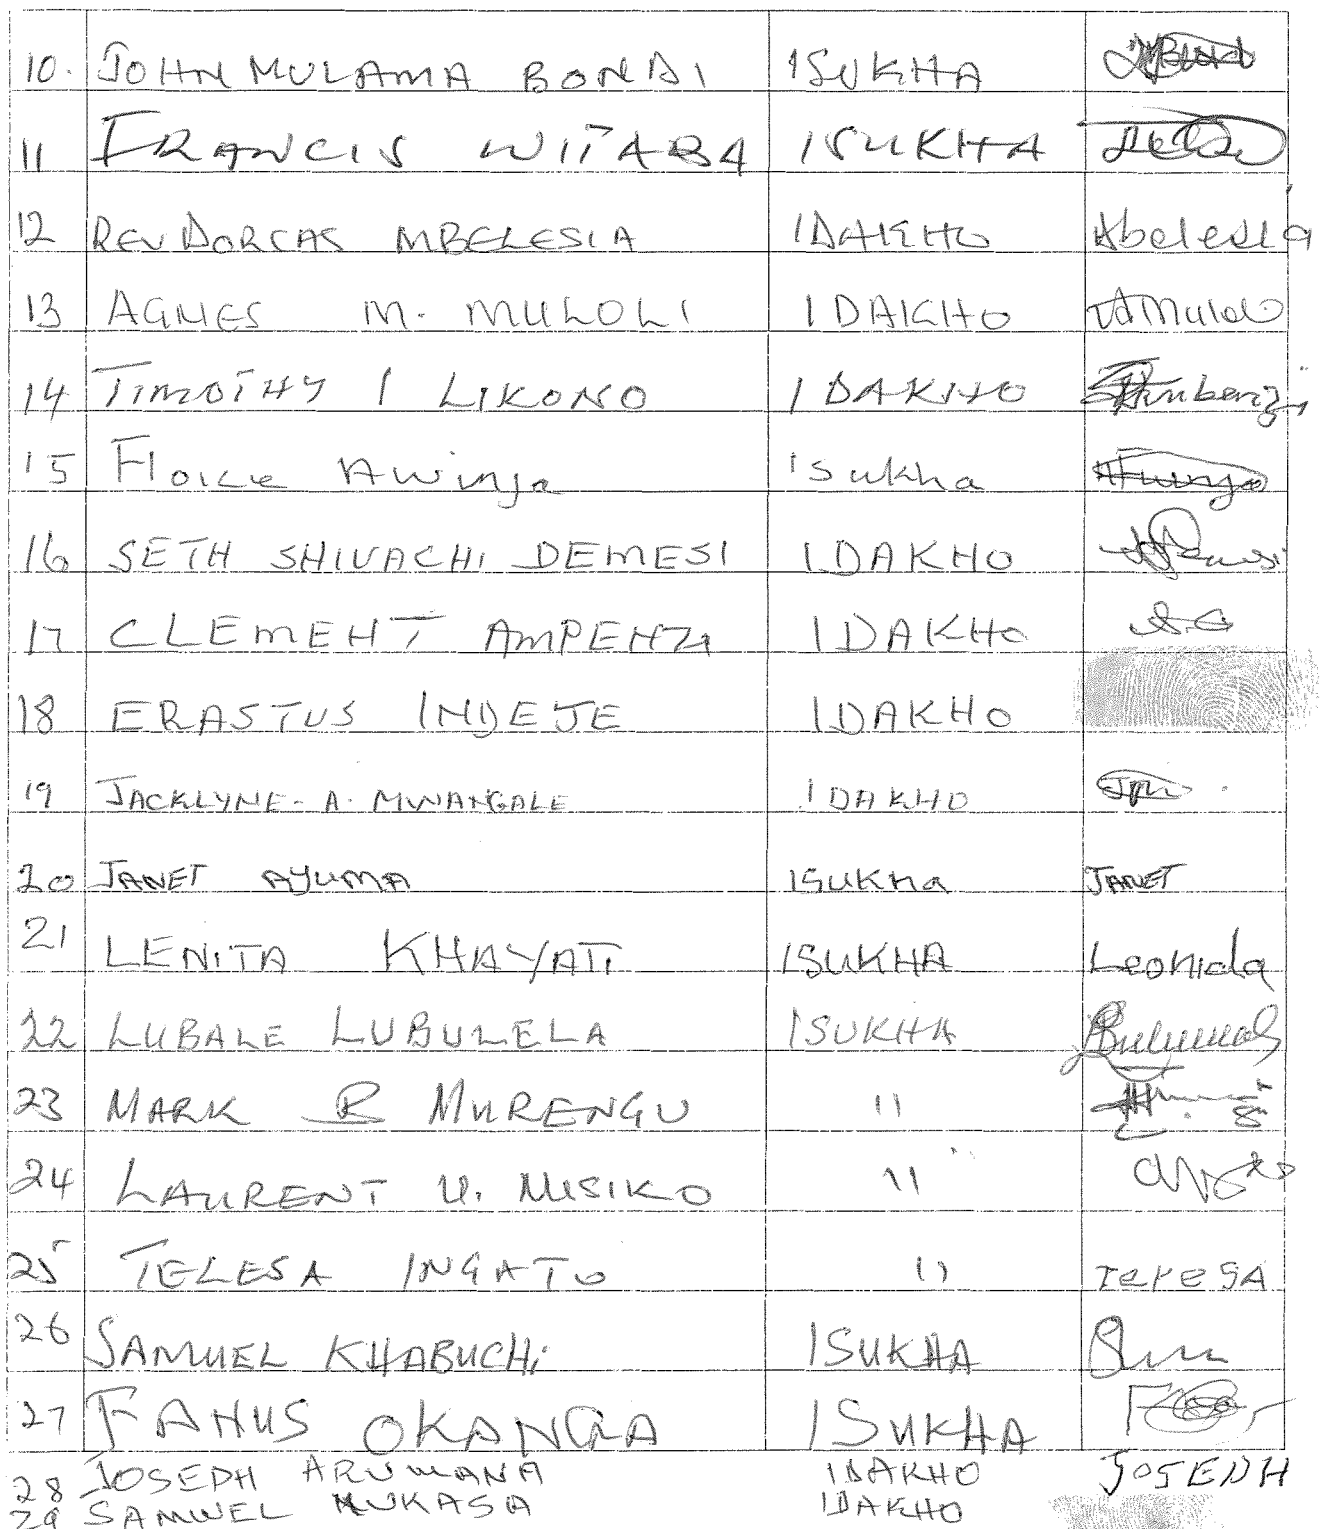 10. JOHN MULAMA BONDI ISUKHA
11 FRANCIS WITABA ISUKHA
12 REV DORCAS MBELESIA IDAKHO Abelesia
13 AGNES M. MULOLI IDAKHO AMulolo
14 TIMOTHY I LIKONO IDAKHO
15 Floice Awinja Isukha Awinja
16 SETH SHIVACHI DEMESI IDAKHO
17 CLEMENT AMPENZA IDAKHO
18 ERASTUS INDEJE IDAKHO
19 JACKLYNE. A. MWANGALE IDAKHO
20 JANET AYUMA ISUKHa JANET
21 LENITA KHAYATI ISUKHA Leonida
22 LUBALE LUBULELA ISUKHA
23 MARK B MURENGU "
24 LAURENT U. MISIKO "
25 TELESA INGATO " TeresA
26 SAMUEL KHABUCHI ISUKHA
27 FANUS OKANGA ISUKHA
28 JOSEPH ARUMANA IDAKHO JOSEPH
29 SAMWEL MUKASA IDAKHO